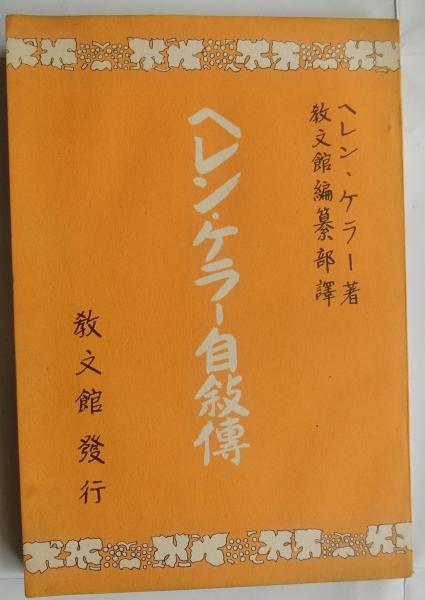 ヘレン・ケラー著
教文館編纂部譯
ヘレン・ケラー自敍傳
教文館發行